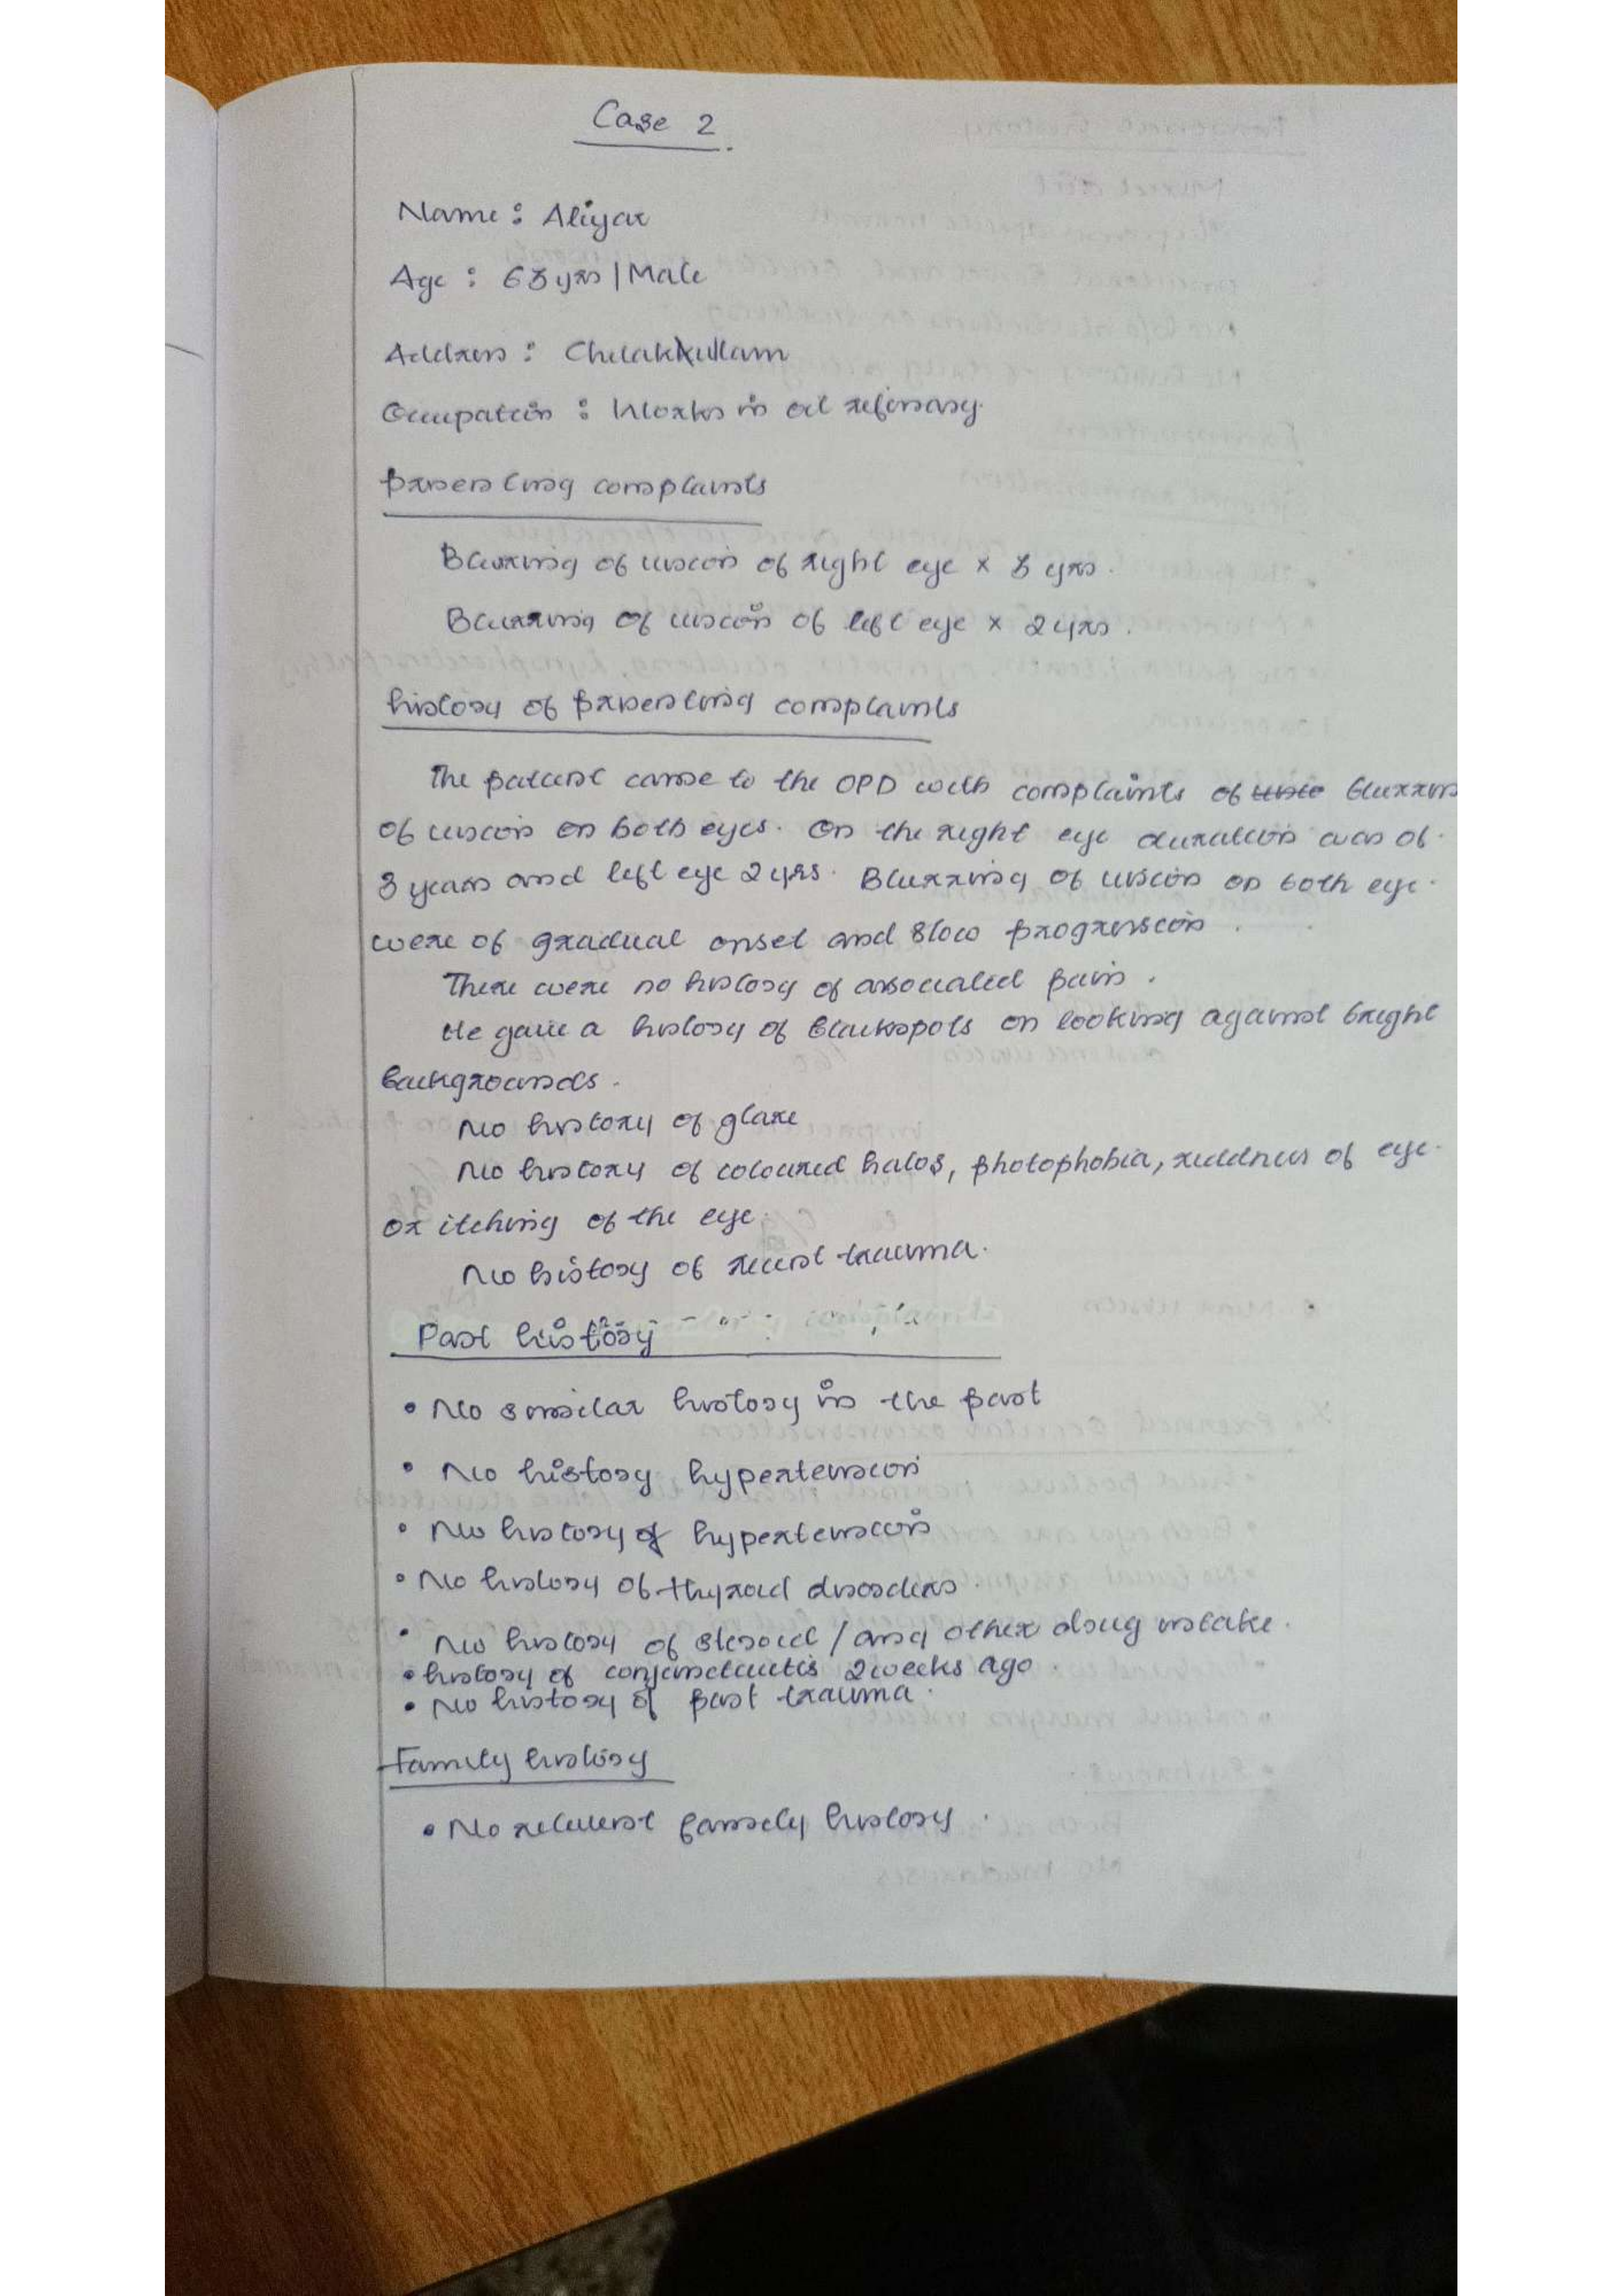 Case 2.
Name : Aliyar
Age : 63 yrs | Male
Address : Chelakkulam
Occupation : Works in oil refinary.
Presenting complaints
Blurring of vision of right eye x 3 yrs.
Blurring of vision of left eye x 2 yrs.
history of presenting complaints
The patient came to the OPD with complaints of blurring
of vision on both eyes. On the right eye duration was of
3 years and left eye 2 yrs. Blurring of vision on both eye.
were of gradual onset and slow progression.
There were no history of associated pain.
He gave a history of blackspots on looking against bright
backgrounds.
No history of glare
No history of coloured halos, photophobia, reddness of eye.
or itching of the eye.
No history of recent trauma.
Past history
• No similar history in the past
• No history hypertension
• No history of hypertension
• No history of thyroid disorders.
• No history of steroid / any other drug intake.
• history of conjunctivitis 2 weeks ago.
• No history of past trauma.
Family history
• No relevent family history.